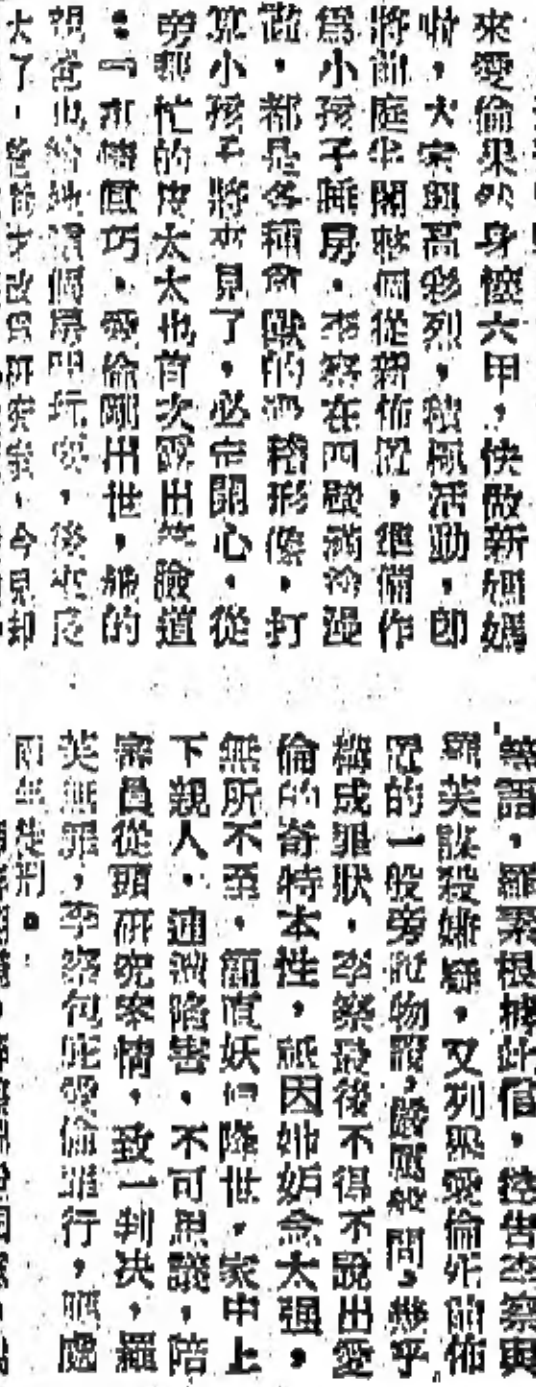 來愛倫果然身懷六甲，快做新媽媽
啦，大家興高彩烈，積極活動，即
將前庭半閣整個從新佈置，準備作
為小孩子睡房。李察在四壁滿塗漫
做，都是各種奇獸的 形像，打
算小孩子將來見了，必定開心。從
旁幫忙的皮太太也首次露出笑臉道
：一亦 真巧。愛倫剛出世，她的
親爸也給她 個房間玩耍，後來
大了，爸爸才改為研究室，今見却
等語，羅素根據此信，控告李察與
羅芙謀殺嫌疑，又列舉愛倫死前佈
置的一般旁証物證，嚴厲 問，幾乎
構成罪狀，李察最後不得不說出愛
倫的奇特本性，祇因她妒念太强，
無所不至，簡直妖 降世，家中上
下親人，連被陷害，不可思議，陪
審員從頭研究案情，致一判决，羅
芙無罪，李察包庇愛倫罪行，
兩年徒刑。